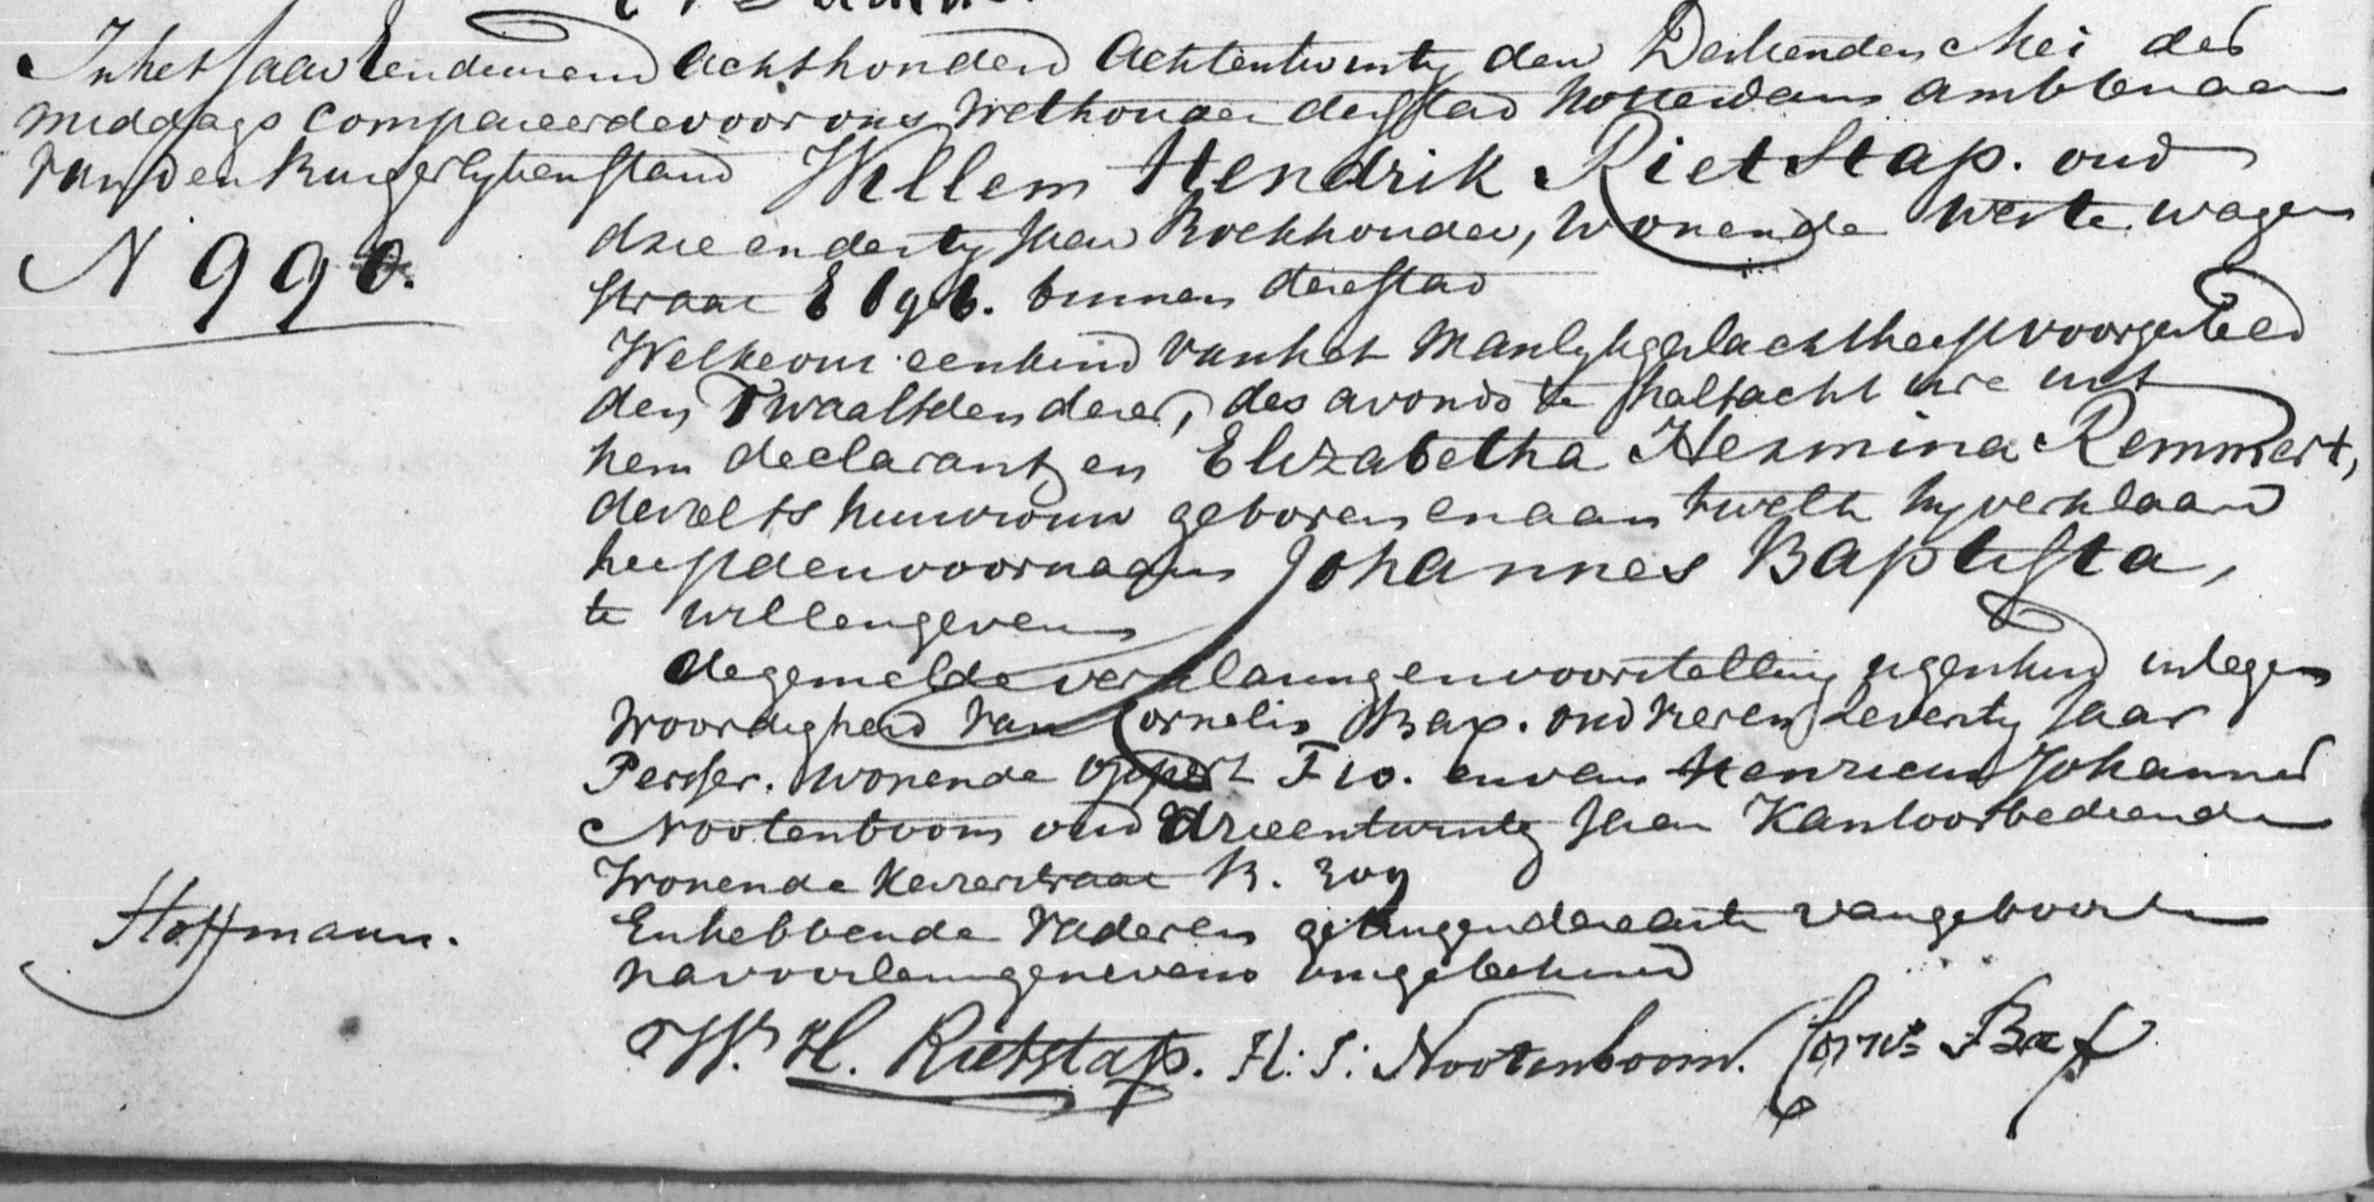 In het Jaar Eenduizend Achthonderd Achtentwintig den Dertienden Mei des
middags Compareerde voor ons Wethouder der Stad Rotterdam Ambtenaar
van den Burgerlyken Stand Willem Hendrik RietStap. oud
N 990.
drie en dertig Jaar Boekhouder, Wonende Weste wagen
straat E 196. binnen deze Stad
Welke ons een kind van het Manlyk geslacht heeft voorgesteld
den Twaalfden dezer, des avonds te half acht ure uit
hem declarant, en Elizabetha Hermina Remmert,
deszelfs huisvrouw geboren en aan twelk hy verklaard
heeft de voornaam Johannes Baptista,
te willen geven
de gemelde verklaring en voorstelling zijn geschied in tegen
Woordigheid van Cornelis Bax. oud vier en Zeventig Jaar
Persser. Wonende Oppert F 10. en van Henricus Johannes
Nootenboom oud drieentwintig Jaar Kantoorbediende
Wonende Keizerstraat K. 309
Hoffmann.
En hebbende Vader en getuigen deze acte van geboorte
na voorlezing nevens ons getekend
W. H. Rietstap. H: J: Nootenboom. Corns Bax